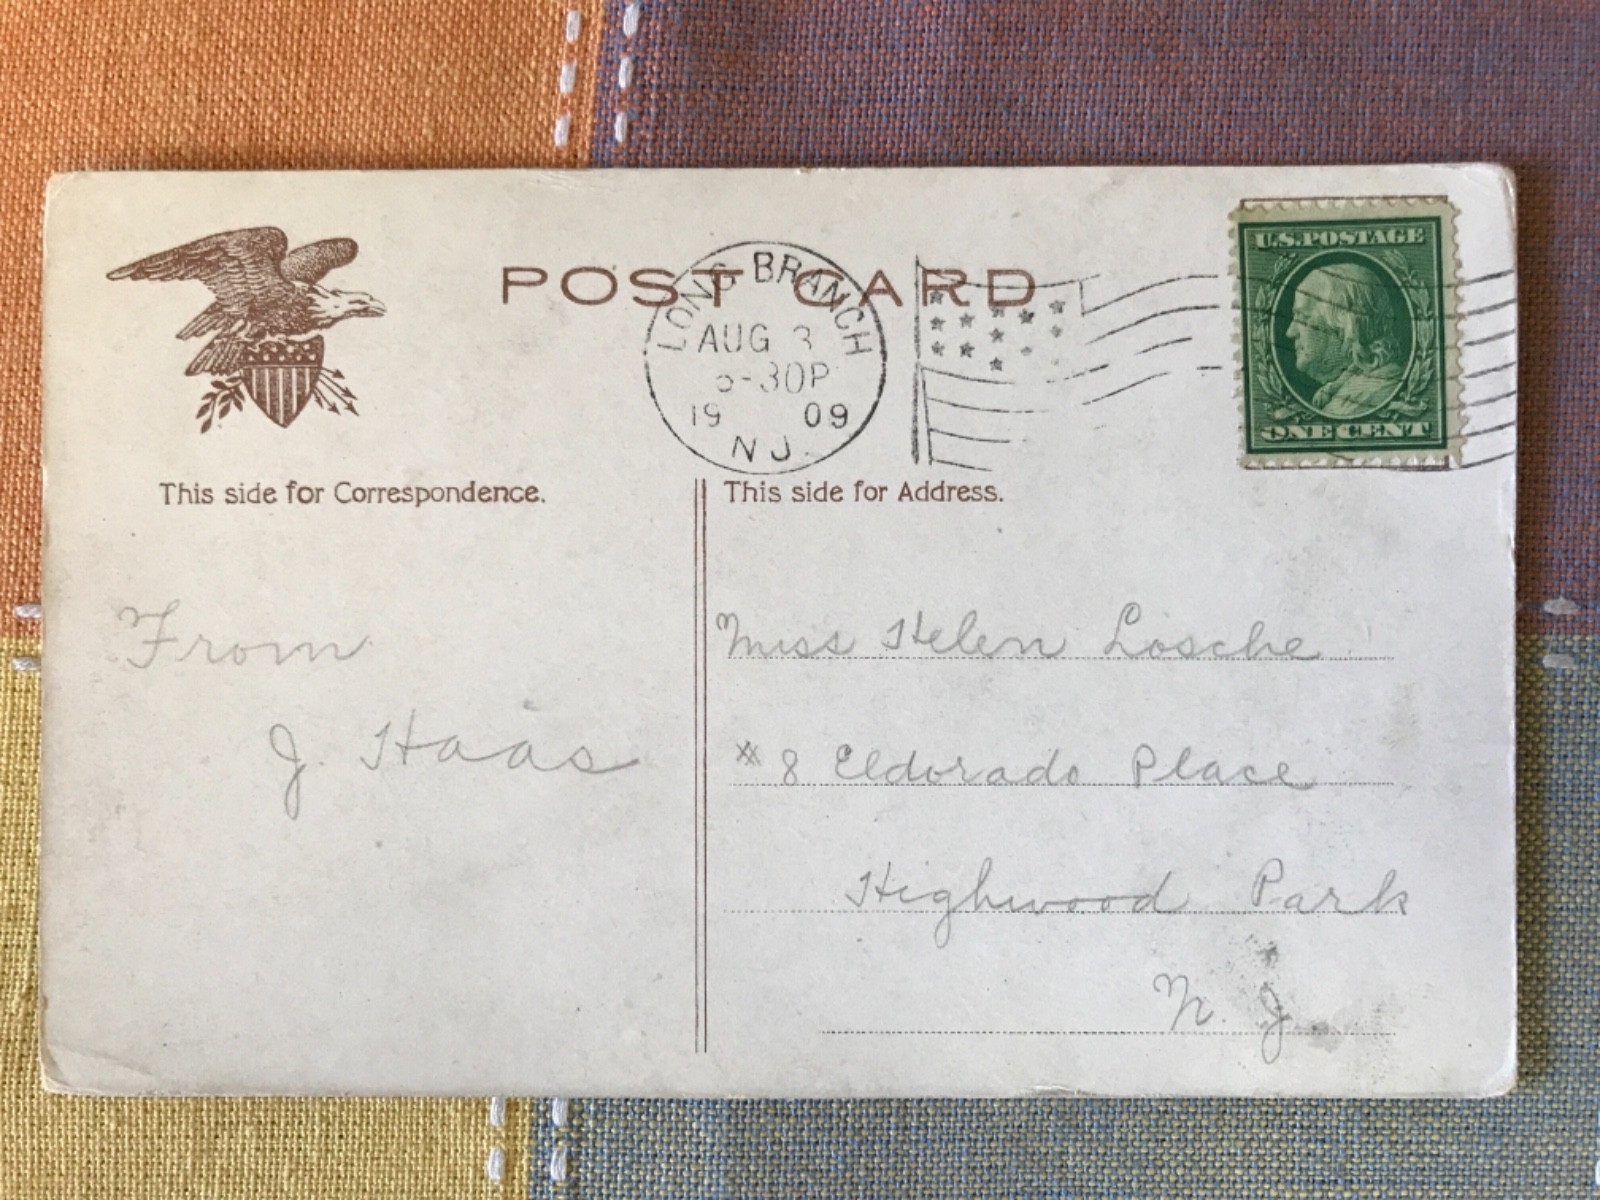 POST CARD
LONG BRANCH
AUG 3
-30P
19 09
N.J.
U.S. POSTAGE
ONE CENT
This side for Correspondence.
This side for Address.
From
J. Haas
Miss Helen Losche
# 8 Eldorado Place
Highwood Park
N. J.